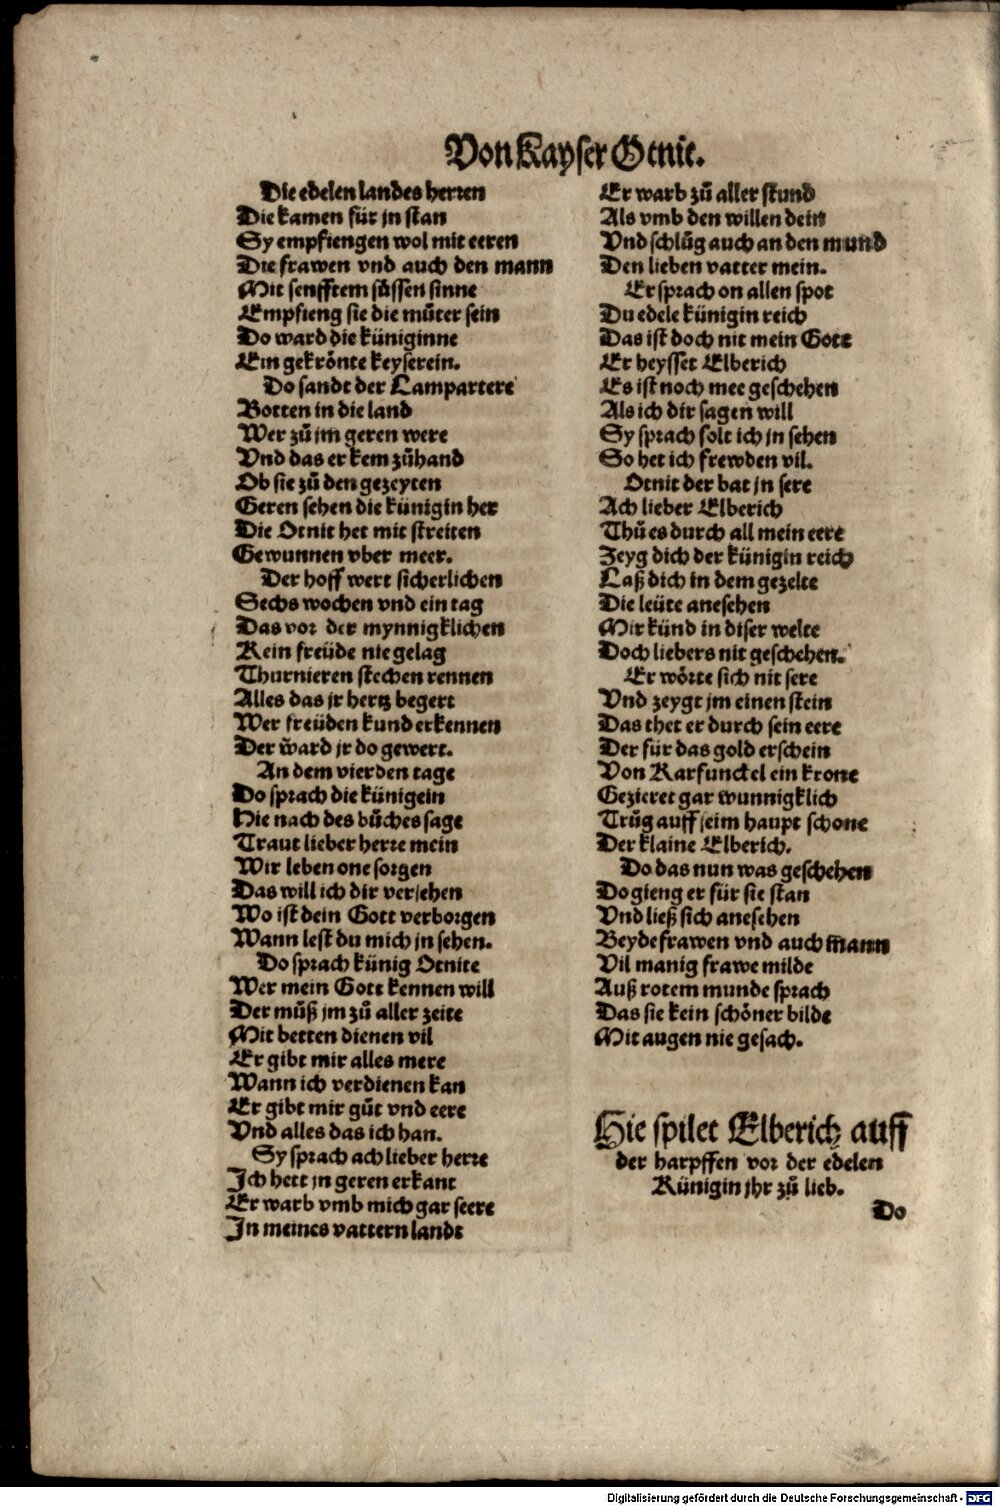 Von Kayser Otnit.
Die edelen landes herren
Die kamen für jn stan
Sy empfiengen wol mit eeren
Die frawen vnd auch den mann
Mit senfftem süssen sinne
Empfieng sie die můter sein
Do ward die küniginne
Ein gekrönte keyserein.
Do sandt der Lampartere
Botten in die land
Wer zů im geren were
Vnd das er kem zůhand
Ob sie zů den gezeyten
Geren sehen die künigin her
Die Otnit het mit streiten
Gewunnen vber meer.
Der hoff wert sicherlichen
Sechs wochen vnd ein tag
Das vor der mynnigklichen
Kein freüde nie gelag
Thurnieren stechen rennen
Alles das jr hertz begert
Wer freüden kund erkennen
Der ward jr do gewert.
An dem vierden tage
Do sprach die künigein
Hie nach des bůches sage
Traut lieber herre mein
Wir leben one sorgen
Das will ich dir verjehen
Wo ist dein Gott verborgen
Wann lest du mich jn sehen.
Do sprach künig Otnite
Wer mein Gott kennen will
Der můß jm zů aller zeite
Mit betten dienen vil
Er gibt mir alles mere
Wann ich verdienen kan
Er gibt mir gůt vnd eere
Vnd alles das ich han.
Sy sprach ach lieber herre
Ich hett jn geren erkant
Er warb vmb mich gar seere
In meines vattern landt
Er warb zů aller stund
Als vmb den willen dein
Vnd schlůg auch an den mund
Den lieben vatter mein.
Er sprach on allen spot
Du edele künigin reich
Das ist doch nit mein Gott
Er heysset Elberich
Es ist noch mee geschehen
Als ich dir sagen will
Sy sprach solt ich jn sehen
So het ich frewden vil.
Otnit der bat jn sere
Ach lieber Elberich
Thů es durch all mein eere
Zeyg dich der künigin reich
Laß dich in dem gezelte
Die leüte anesehen
Mir künd in diser welte
Doch liebers nit geschehen.
Er wörte sich nit sere
Vnd zeygt jm einen stein
Das thet er durch sein eere
Der für das gold erschein
Von Karfunckel ein krone
Gezieret gar wunnigklich
Trůg auff seim haupt schone
Der klaine Elberich.
Do das nun was geschehen
Do gieng er für sie stan
Vnd ließ sich anesehen
Beyde frawen vnd auch mann
Vil manig frawe milde
Auß rotem munde sprach
Das sie kein schöner bilde
Mit augen nie gesach.
Hie spilet Elberich auff
der harpffen vor der edelen
Künigin jhr zů lieb.
Do
Digitalisierung gefördert durch die Deutsche Forschungsgemeinschaft - DFG